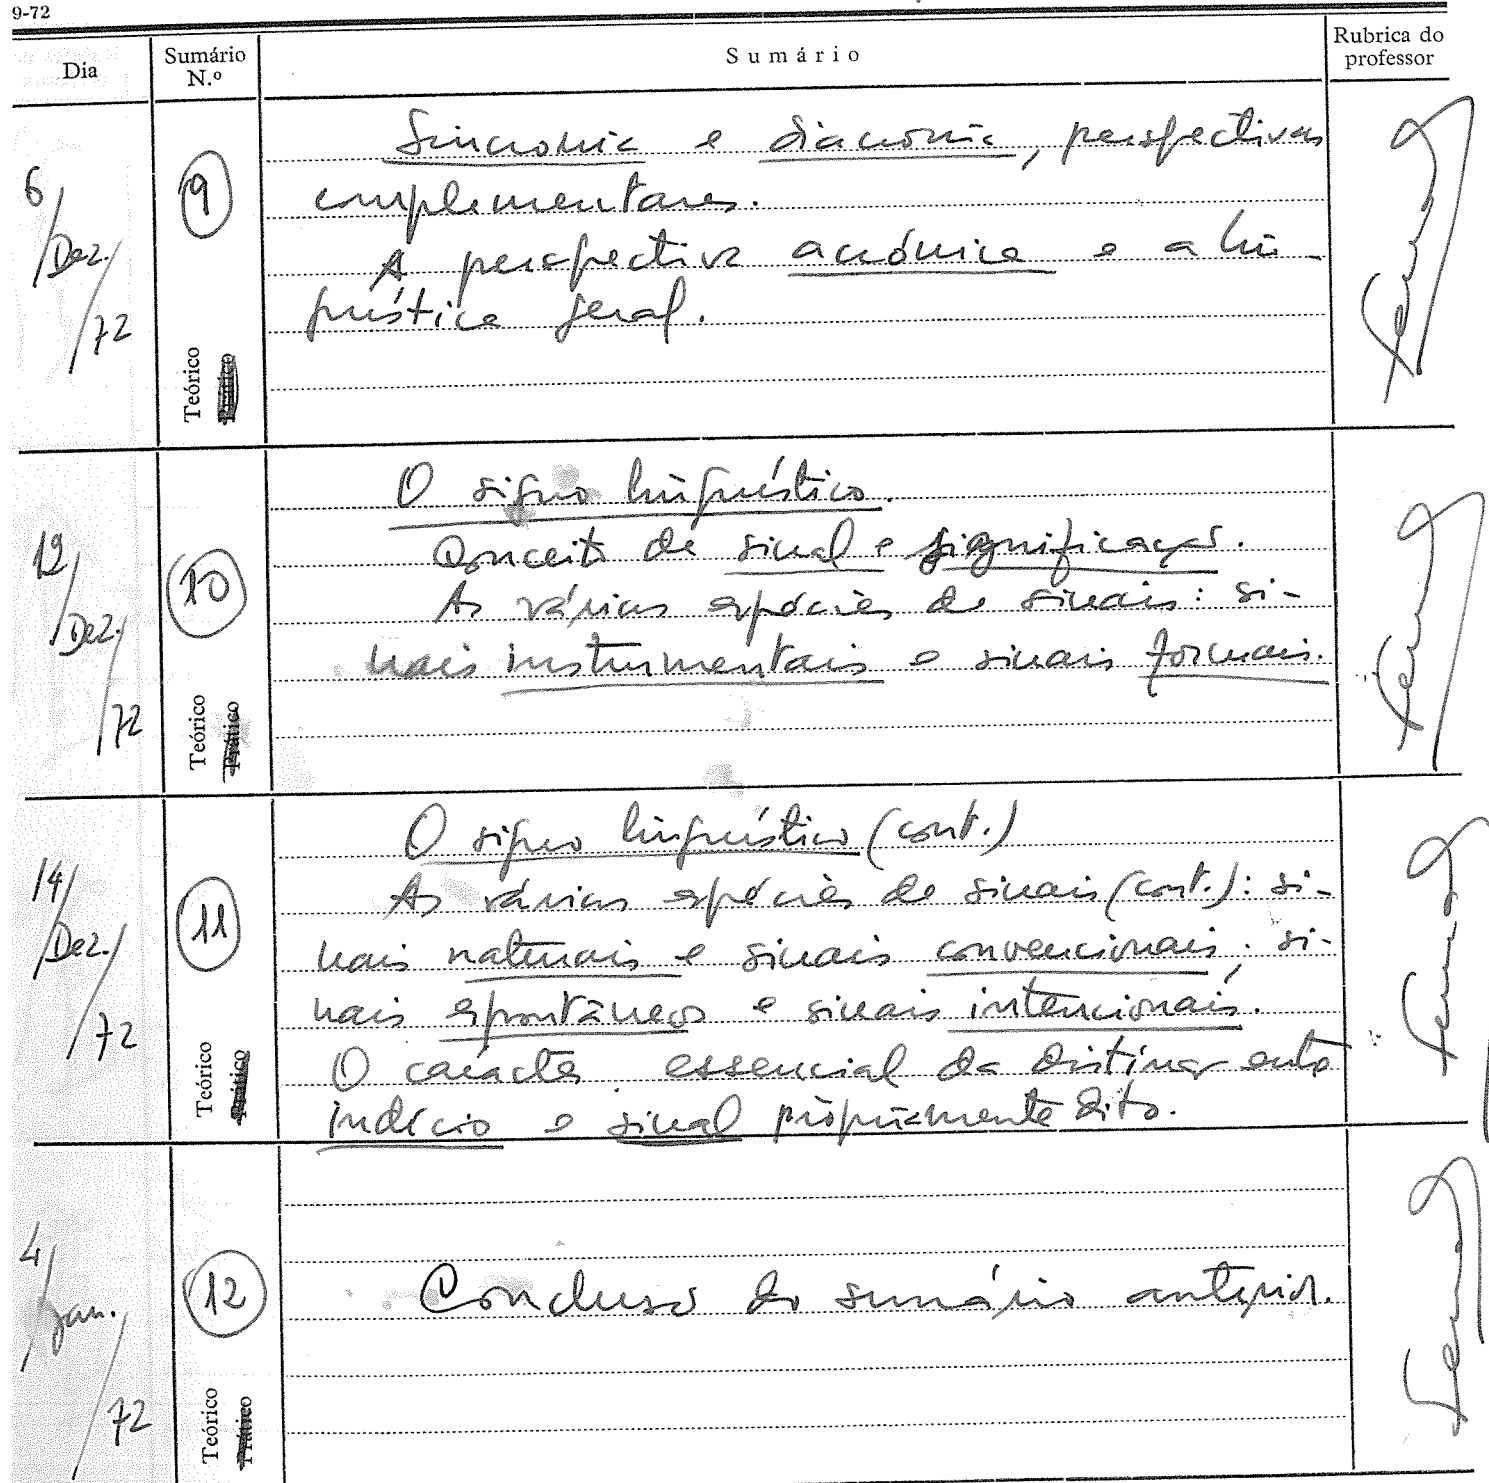 9-72
Dia
Sumário N.º
Sumário
Rubrica do professor
6/Dez./72
9
Teórico
Prático
Sincronia e diacronia, perspectivas
complementares.
A perspectiva acrónica e a lin-
guística geral.
12/Dez./72
10
Teórico
Prático
O signo linguístico.
Conceito de sinal e significação.
As várias espécies de sinais: si-
nais instrumentais e sinais formais.
14/Dez./72
11
Teórico
Prático
O signo linguístico (cont.)
As várias espécies de sinais (cont.): si-
nais naturais e sinais convencionais; si-
nais espontâneos e sinais intencionais.
O carácter essencial da distinção entre
indício e sinal propriamente dito.
4/Jan./72
12
Teórico
Prático
Conclusão do sumário anterior.